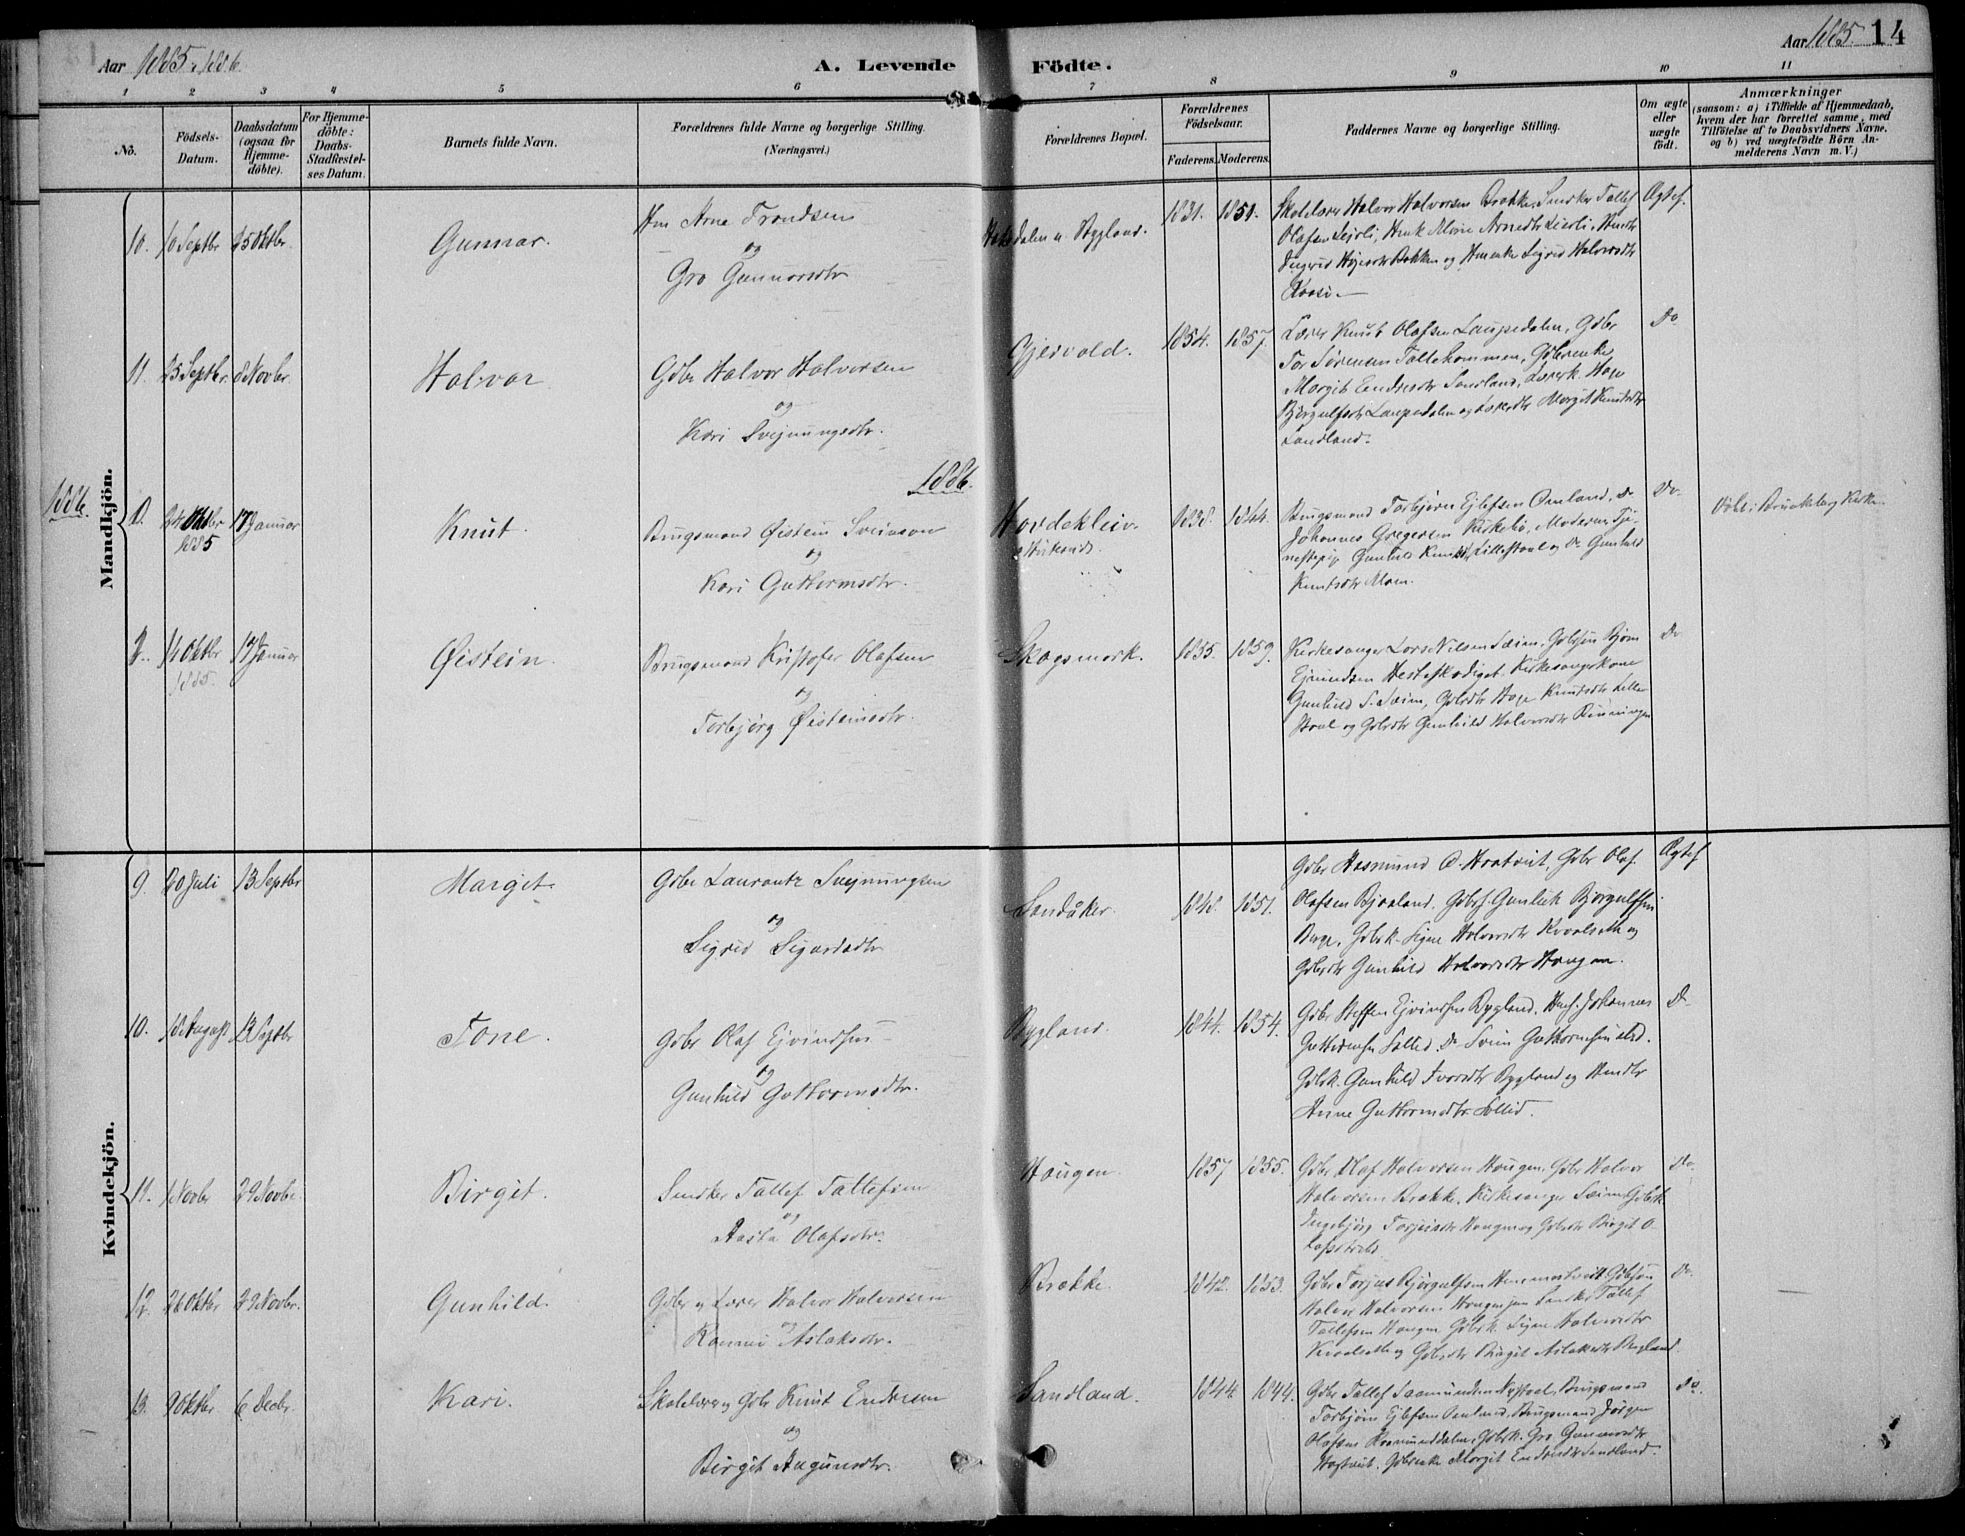 Aar 1885, 1886.
A. Levende Födte.
Aar 1885. 14
1 2 3 4 5 6 7 8 9 10 11
No.
Födsels-Datum.
Daabsdatum (ogsaa for Hjemme-döbte).
For Hjemme-döbte: Daabs-Stadfæstel-ses Datum.
Barnets fulde Navn.
Forældrenes fulde Navne og borgerlige Stilling.
(Næringsvei.)
Forældrenes Bopæl.
Forældrenes Födselsaar.
Faderens. Moderens.
Faddernes Navne og borgerlige Stilling.
Om ægte eller uægte födt.
Anmærkninger
(saasom: a) i Tilfælde af Hjemmedaab, hvem der har forrettet samme, med Tilföielse af to Daabsvidners Navne, og b) ved uægtefödte Börn An-melderens Navn m. V.)
Mandkjön.
10. 10 Septbr 25 Oktbr. Gunnar.
Hm Arne Trondsen
og
Gro Gunnarsdtr
Bygland. 1831. 1851.
Skolelærer Halvor Halvorsen Brække, Smsker Tallef
Olafsen
og Sigrid Halvorsdtr
Ægtef.
11. 25 Septbr. 8 Novbr. Halvor
Gdbr Halvor Halvorsen
og
Kari Svejnungsdtr.
Gjeivold. 1854. 1857.
Lærer Knut Olafsen Laupedalen, Gdbr
Tor Sörensen
Margit Endresdtr Sandland, Lærerk. Hæge
Björgulfsdtr Laupedalen og Margit Knutsdtr
Sandland.
Do
1886.
1886.
1. 24 Oktbr 1885 17 Januar Knut.
Brugsmand Øistein Sveinson
og
Kari Guttormsdtr.
Hovdekleiv. 1838. 1844.
Brugsmand Torbjörn Ejlefsen Omland, Do
Johannes Gregersen Kirkebö, Moderens Tje-
nestepige Gunhild Knutsdtr Lillestaal og Do Gunhild
Knutsdtr Moen.
Do.
Döbt i Brunkeberg Kirke.
2. 14 Oktbr 1885. 17 Januar Øistein.
Brugsmand Kristofer Olafsen
og
Torbjörg Øisteinsdtr.
Skogsmark. 1835. 1859.
Kirkesanger Lars Nilsen Seim, Gdbsön Björn
Ejvindsen Kirkesangerkone
Gunhild S. Seim, Gdbrdtr Hæge Knutsdtr Lille
staal og Gdbrdtr Gunhild Halvorsdtr Rönningen
Do
Kvindekjön.
9. 20 Juli 13 Septbr Margit.
Gdbr Laurantz Svejnungsen
og
Sigrid Sigurdsdtr
Sandåker. 1848. 1851.
Gdbr Aasmund O. Hvatvit, Gdbr Olaf
Olafsen Bjaaland, Gdbrs. Gunleik Björgulfsen
Berge, Gdbrk. Signe Halvorsdtr Kivelseth og
Gdbrdtr Gunhild Halvorsdtr Haugen.
Ægtef
10. 18. August 13 Septbr Tone.
Gdbr Olaf Ejvindsen
og
Gunhild Guttormsdtr.
Bygland. 1844. 1854.
Gdbr Steffen Ejvindsen Bygland, Johannes
Guttormsen Sollid, Do Svein Guttormsen
Gdbrk. Gunhild Ivarsdtr Bygland og Hmdtr
Anne Guttormsdtr Sollid.
Do
11. 1 Novbr 29 Novbr. Birgit.
Smsker Tallef Tallefsen
og
Aasta Olafsdtr.
Haugen. 1857 1855.
Gdbr Olaf Halvorsen Haugen, Gdbr Halvor
Halvorsen Brække, Kirkesanger Seim, Gdbrk
Ingebjörg Torjusdtr Haugen og Gdbrdtr Birgit O
Do.
12. 26 Oktbr 29 Novbr. Gunhild.
Gdbr og Lærer Halvor Halvorsen
og
Aslaksdtr.
Brække. 1842. 1853.
Gdbr Torjus Björgulfsen Gdbsön
Halvor Halvorsen Haugen, Smsker Tallef
Tallefsen Haugen, Gdbrk. Signe Halvorsdtr
Kivelseth og Gdbrdtr Birgit Aslaksdtr Bygland
Do.
13. 9 Oktbr 6 Decbr. Kari.
Skolelærer og Gdbr Knut Endresen
og
Birgit Augunsdtr.
Sandland. 1844. 1844.
Gdbr Tallef Saamundsen Brugsmand
Torbjörn Ejlefsen Omland, Brugsmand Jörgen
Olafsen Gdbrk. Gro Gunnarsdtr
Gdbrenke Margit Endresdtr Sandland.
Do.